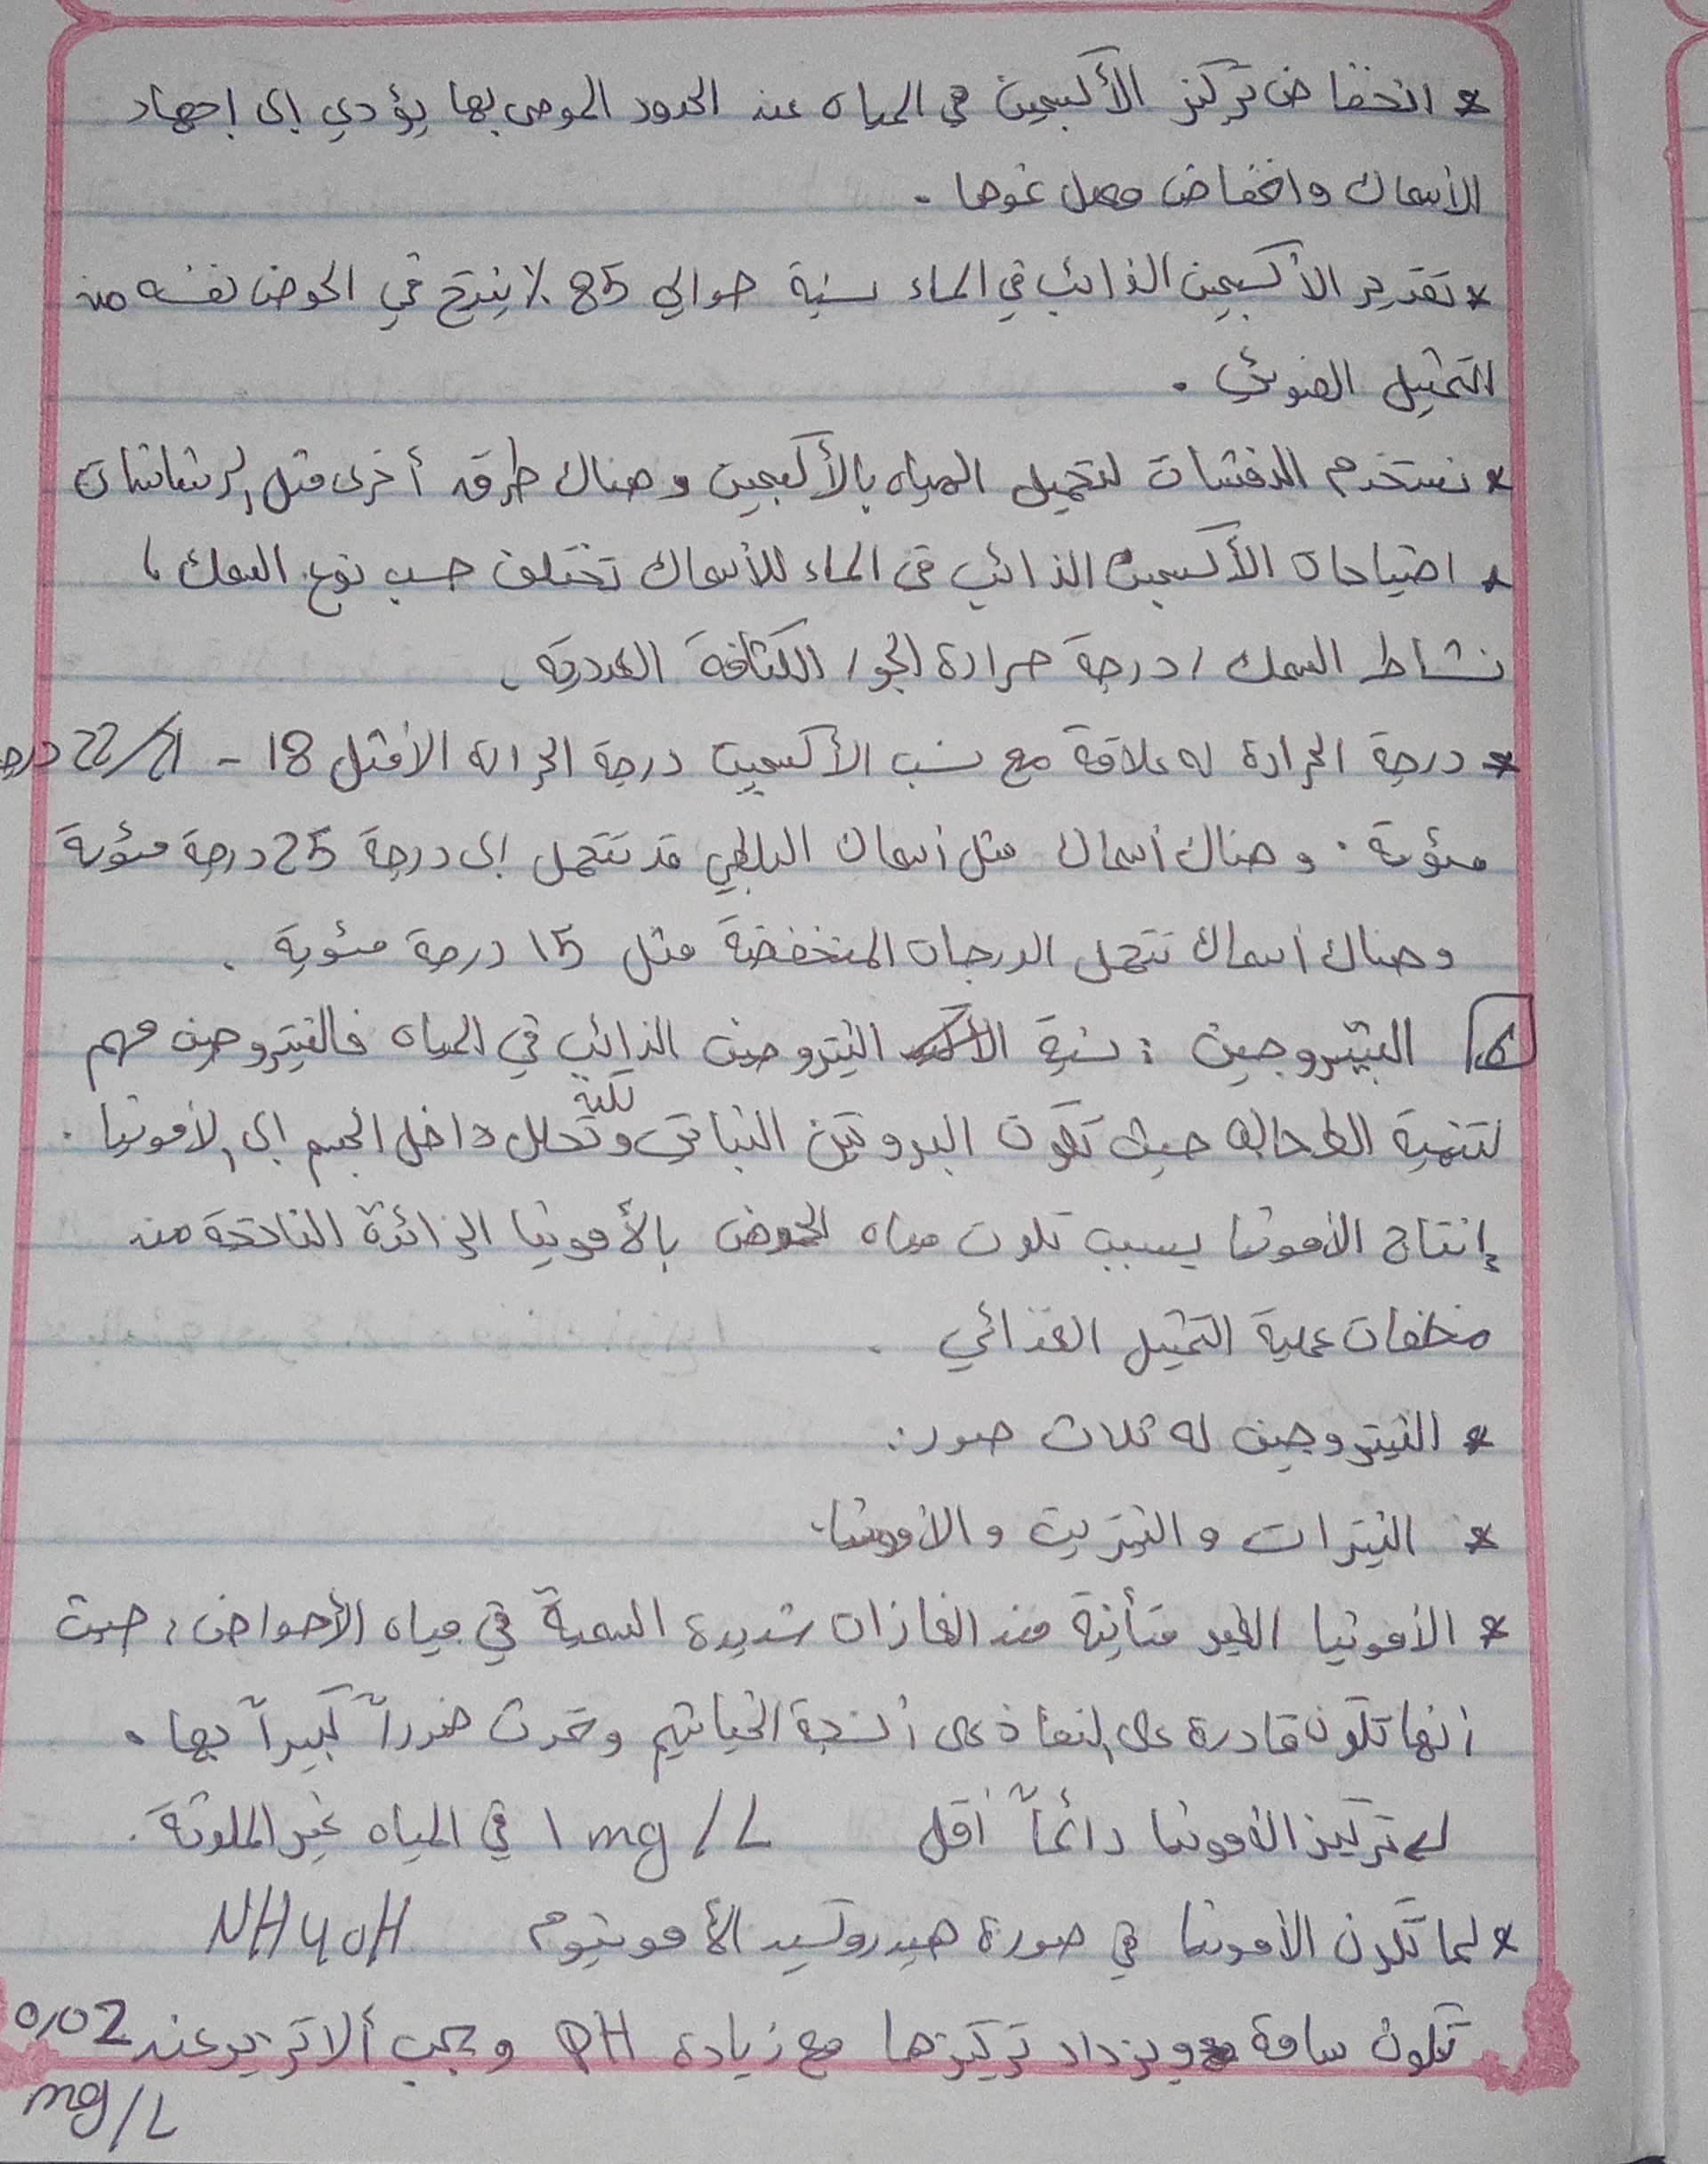 * انخفاض تركيز الأكسجين في المياه عند الحدود الموصى بها يؤدي إلى إجهاد
الأسماك وانخفاض معدل نموها .
* تقدير الأكسجين الذائب في الماء نسبة حوالي 85 % ينتج في الحوض نفسه من
التمثيل الضوئي .
* نستخدم الدفشات لتحميل المياه بالأكسجين وهناك طرق أخرى مثل الرشاشات
* احتياجات الأكسجين الذائب في الماء للأسماك تختلف حسب نوع السمك ،
نشاط السمك / درجة حرارة الجو / الكثافة العددية .
* درجة الحرارة له علاقة مع نسب الأكسجين درجة الحرارة الأفضل 18 - 21/22 درجة
مئوية . وهناك أسماك مثل أسماك البلطي قد تتحمل إلى درجة 25 درجة مئوية
وهناك أسماك تتحمل الدرجات المنخفضة مثل 15 درجة مئوية .
النيتروجين : نسبة النيتروجين الذائب في المياه فالنيتروجين مهم
لتنمية الطحالب حيث تكون البروتين النباتي لكنه وتحلل داخل الجسم إلى الأمونيا .
إنتاج الأمونيا يسبب تلوث مياه الحوض بالأمونيا الزائدة الناتجة من
مخلفات عملية التمثيل الغذائي .
* النيتروجين له ثلاث صور :
* النيترات والنيتريت والأمونيا .
* الأمونيا الغير متأينة من الغازات شديدة السمية في مياه الأحواض ، حيث
أنها تكون قادرة على النفاذ على أنسجة الخياشيم وتحدث ضرراً كبيراً بها .
تركيز الأمونيا دائماً أقل 1 mg/L في المياه غير الملوثة .
* لما تكون الأمونيا في صورة هيدروكسيد الأمونيوم NH4OH
تكون سامة ويزداد تركيزها مع زيادة PH ويجب ألا تزيد عند 0,02
mg/L